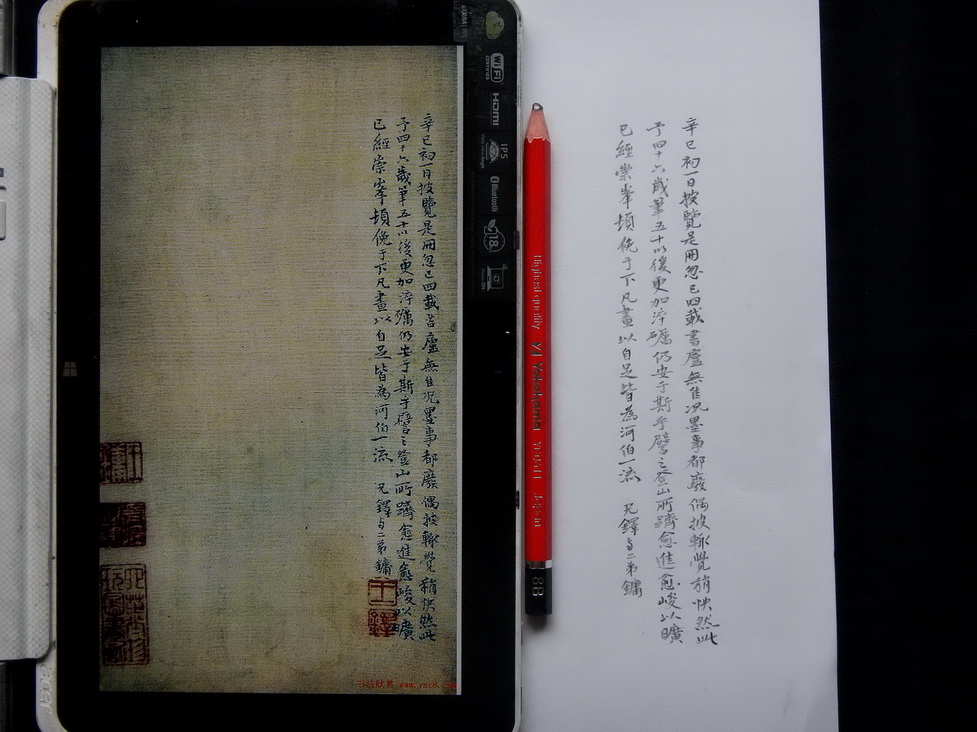 辛巳初一日披覽是册忽已四載書廬無佳况墨事都廢偶披輒覺稍快然此
予四十六歲筆五十以後更加淬礪仍安于斯乎譬之登山所躋愈進愈峻以曠
已經崇峯頓俛于下凡畫以自足皆為河伯一流 兄鐸与二弟鏞
王鐸
书法欣赏 www.yac8.com
WiFi
CERTIFIED
HDMI
IPS
Bluetooth
8B
辛巳初一日披覽是册忽已四載書廬無佳况墨事都廢偶披輒覺稍快然此
予四十六歲筆五十以後更加淬礪仍安于斯乎譬之登山所躋愈進愈峻以曠
已經崇峯頓俛于下凡畫以自足皆為河伯一流 兄鐸与二弟鏞